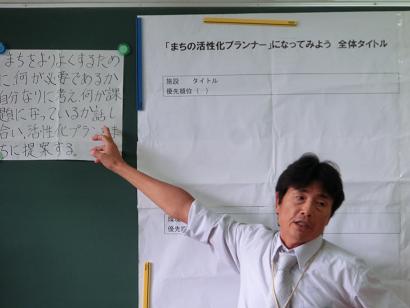 まちをよりよくするため
に、何が必要であるか
自分なりに考え、何が課
題になっているか話し
合い、活性化プランをま
ちに提案する。
「まちの活性化プランナー」になってみよう 全体タイトル
施設 タイトル
優先順位（ ）
優先順